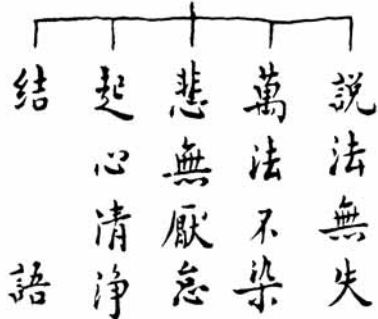 說法無失
萬法不染
悲無厭怠
起心清淨
結語